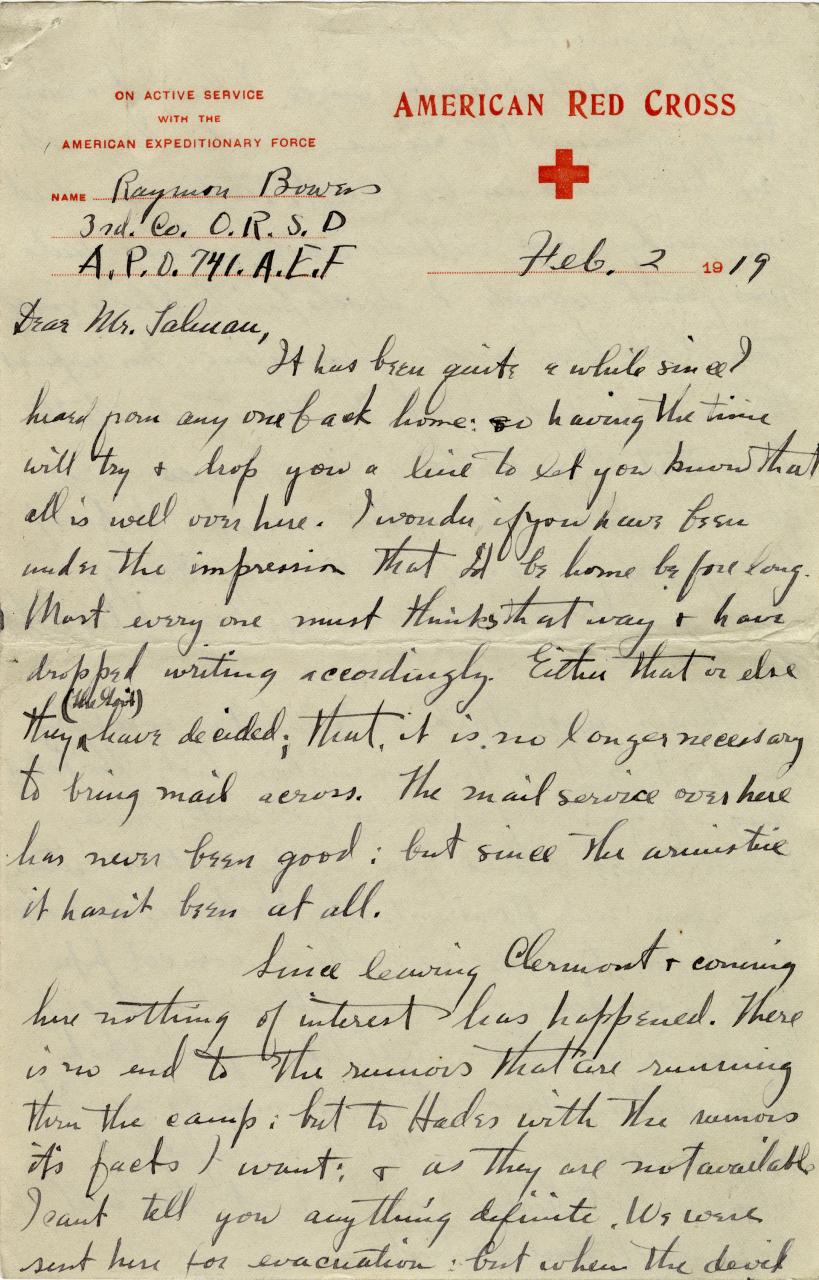 ON ACTIVE SERVICE
WITH THE
AMERICAN EXPEDITIONARY FORCE
AMERICAN RED CROSS
NAME Raymon Bowers
3rd. Co. O.R.S.D
A.P.O. 741. A.E.F
Feb. 2 1919
Dear Mr. Salman,
It has been quite a while since I
heard from any one back home: so having the time
will try & drop you a line to let you know that
all is well over here. I wonder if you have been
under the impression that I'd be home before long.
Most every one must thinks that way & have
dropped writing accordingly. Either that or else
(the Gov't)
they have decided; that, it is no longer necessary
to bring mail across. The mail service over here
has never been good; but since the armistice
it hasn't been at all.
Since leaving Clermont & coming
here nothing of interest has happened. There
is no end to the rumors that are running
thru the camp; but to Hades with the rumors
it's facts I want; & as they are not available
I cant tell you anything definite. We were
sent here for evacuation; but when the devil